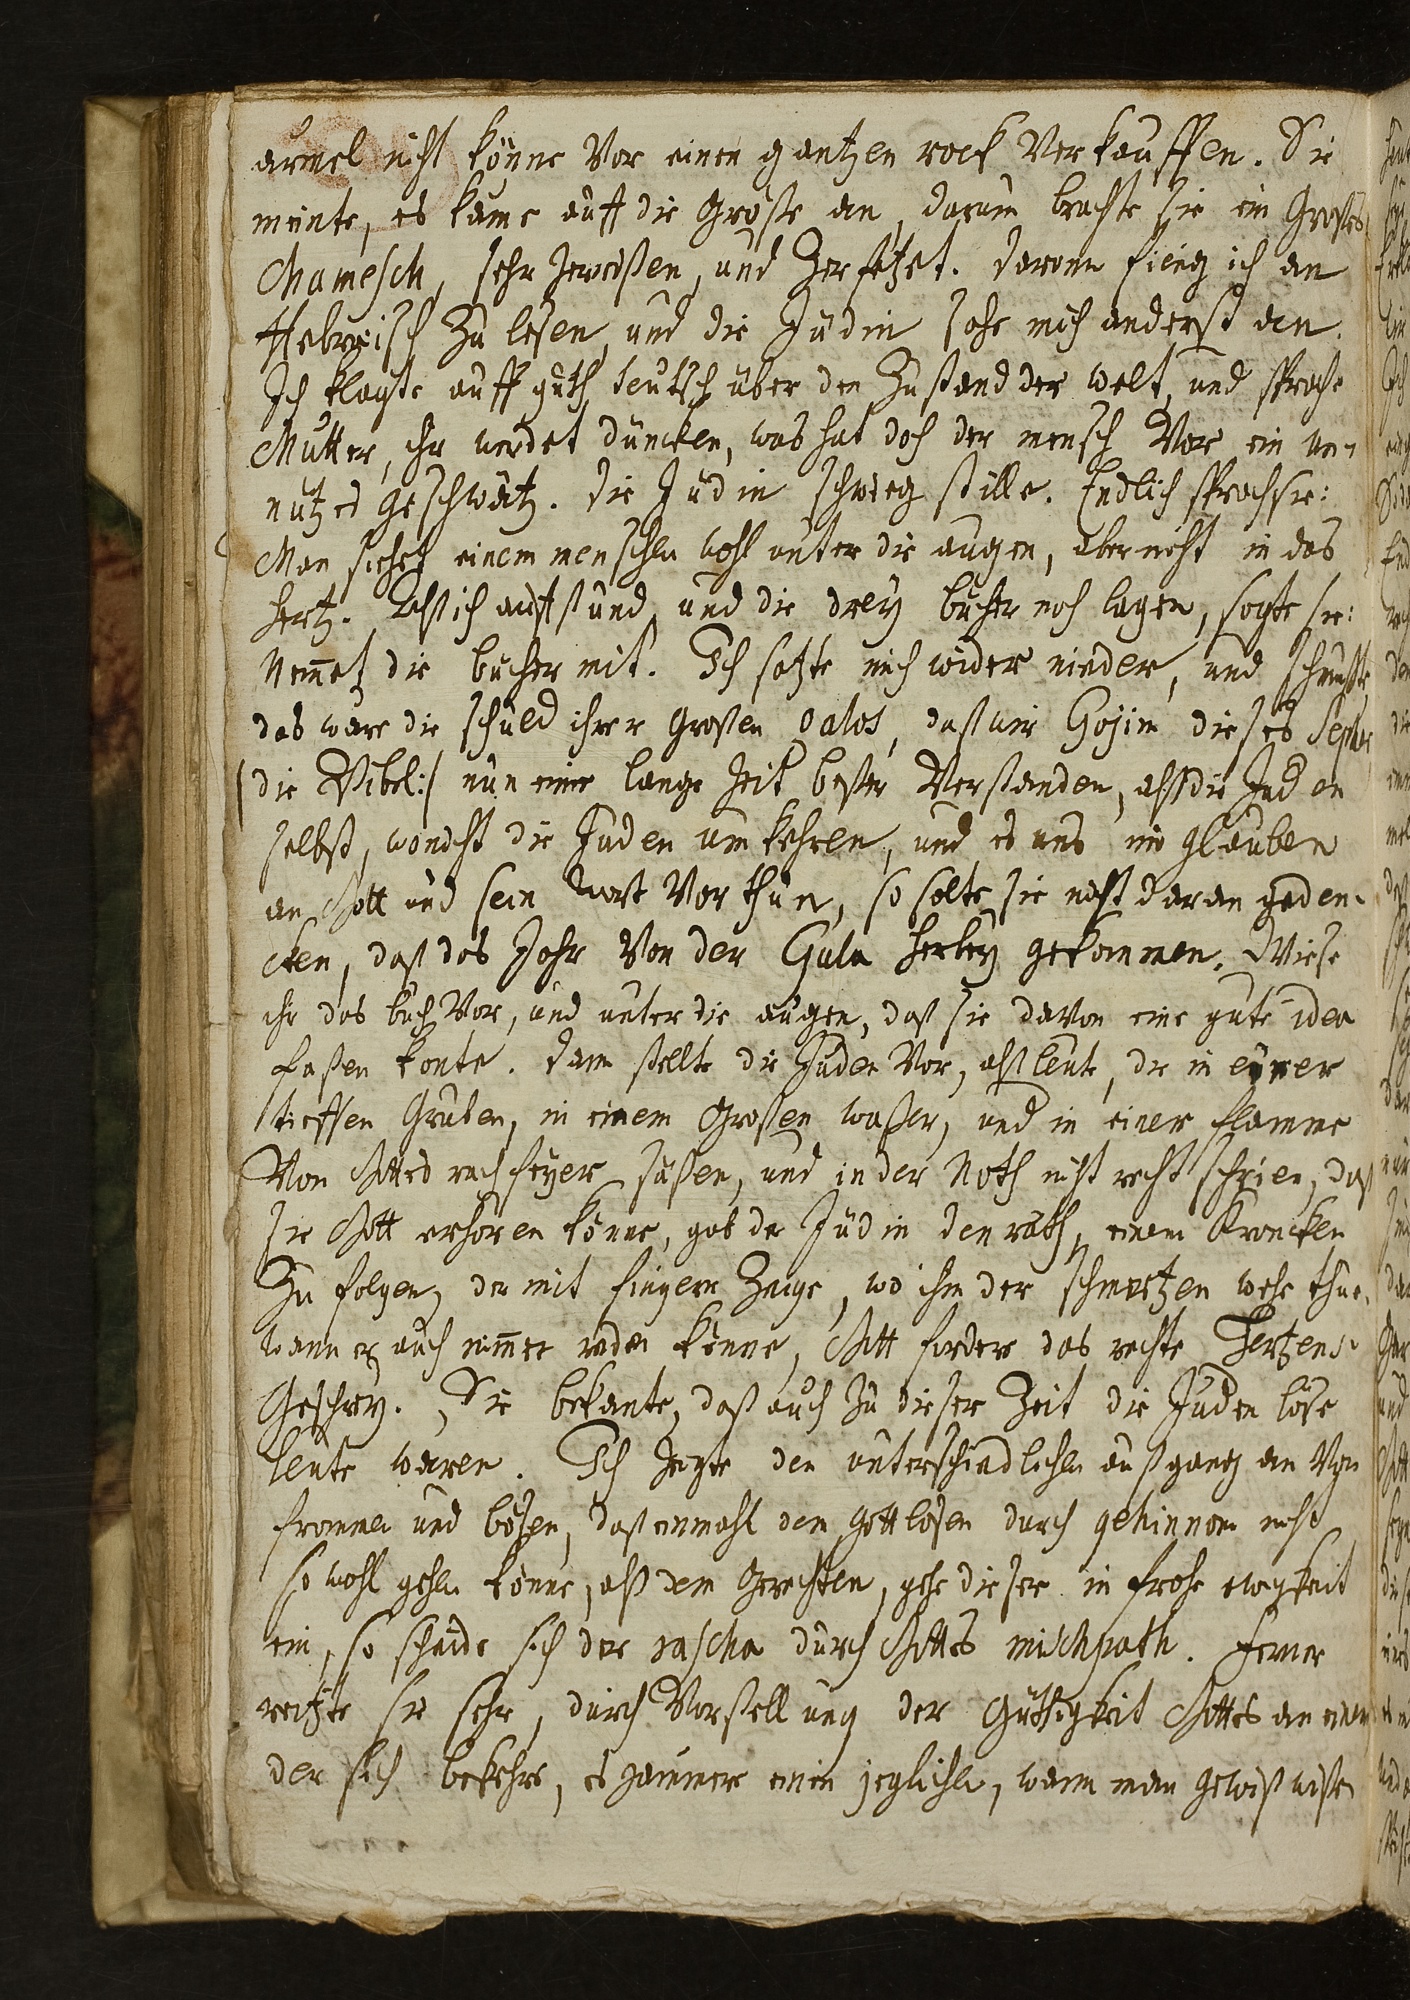 armel nicht könne Vor einen gantzen rock Verkauffen. Sie
meinte, es käme auff die Größe an, darum brachte sie ein Großes
Chamesch, sehr zerrißen, und Zerfetzet. daronn fieng ich an
Hebreisch Zu lesen, und die Jüdin sahe mich anderst an.
Ich klagte auff guth teutsch über den Zustand der welt, und sprache
Mutter, ihr werdet düncken, was hat doch der mensch Vor ein un-
nützes geschwätz. die Jüdin schwieg stille. Endlich sprach sie:
Man siehet einem menschen wohl unter die augen, aber nicht in das
hertz. Alß ich auffstund, und die drey bücher noch lagen, sagte sie:
Nem̄et die bücher mit. Ich satzte mich wider nieder, und
das ware die schuld ihrer großen galos, daß wir Gojim dieses Sepher
(die Bibel:/ nun eine lange Zeit beßer Verstanden, alß die Juden
selbst, wo nicht die Juden um kehren, und es uns im glauben
an Gott und sein wort Vor thun, so solte sie nicht daran geden-
cken, daß das Jahr Von der Gula herbey gekommen. Wiese
ihr das buch Vor, und unter die augen, daß sie davon eine gute idea
faßen konte. dann stellte die Juden Vor, alß leute, die in eyner
tieffen Gruben, in einem Großen waßer, und in einer flamme
Von Gottes rach feyer säßen, und in der Noth nicht recht schrien, daß
sie Gott erhören könne, gab der Jüdin den rath, einem Krancken
Zu folgen, der mit fingern Zeige, wo ihm der schmertzen wehe thue,
wann er auch nim̄er reden könne, Gott fordere das rechte Hertzens
Geschrey. Sie bekante, daß auch zu dieser Zeit die Juden böse
leute waren. Ich zeigte den unterschiedlichen außgang an Von
frommen und bösen, daß einmahl dem gottlosen durch gehinnom nicht
so wohl gehen könne, alß dem Gerechten, gehe dieser in frohe ewigkeit
ein, so scheide sich der rascha durch Gottes mischpath. Ferner
reitzte sie sehr, durch Vorstellung der Gütigkeit Gottes an einen
der sich bekehre, es jammere einen jeglichen, wann man gewiß wiße